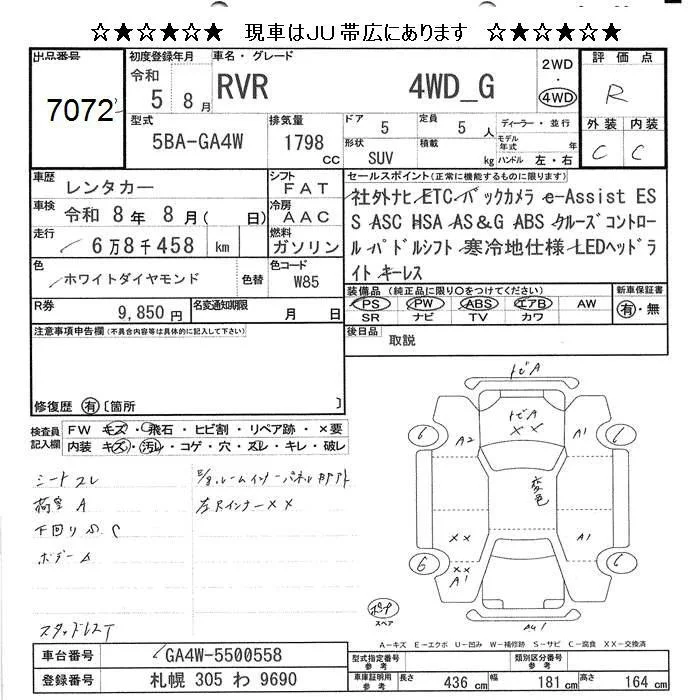 ☆★☆★☆★ 現車はJU帯広にあります ☆★☆★☆★
出品番号
7072
初度登録年月
令和
5 8月
車名・グレード
RVR 4WD_G
2WD
・
4WD
評価点
R
外装 内装
C C
型式
5BA-GA4W
排気量
1798
cc
ドア
5
定員
5
人
形状
SUV
積載
kg
ディーラー・並行
モデル
年式 年
ハンドル 左・右
車歴
レンタカー
シフト
FAT
車検
令和 8年 8月( 日)
冷房
AAC
走行
6万8千458 km
燃料
ガソリン
色
ホワイトダイヤモンド
色替
色コード
W85
R券
9,850円
名変通知期限
月 日
セールスポイント(正常に機能するものに限ります)
社外ナビ ETC バックカメラ e-Assist ES
S ASC HSA AS&G ABS クルーズコントロー
ル パドルシフト 寒冷地仕様 LEDヘッドラ
イト キーレス
装備品(純正品に限り○をつけてください)
PS PW ABS エアB AW
SR ナビ TV カワ
新車保証書
有・無
後日品
取説
注意事項申告欄(不具合内容等は具体的に記入して下さい)
修復歴 有 〔箇所 〕
検査員
記入欄
FW キズ・飛石・ヒビ割・リペア跡・×要
内装 キズ・汚レ・コゲ・穴・スレ・キレ・破レ
シートスレ
荷室 A
下回り
ボデー
左RインナーXX
スタッドレスT
トビA
トビA
XX
A2
A1
変色
XX
XX
A1
A1
6
6
スペア
A-キズ E-エクボ U-凹み W-補修跡 S-サビ C-腐食 XX-交換済
車台番号
GA4W-5500558
登録番号
札幌 305 わ 9690
型式指定番号
参考
類別区分番号
参考
車庫証明用
参考
長さ 436 cm
幅 181 cm
高さ 164 cm